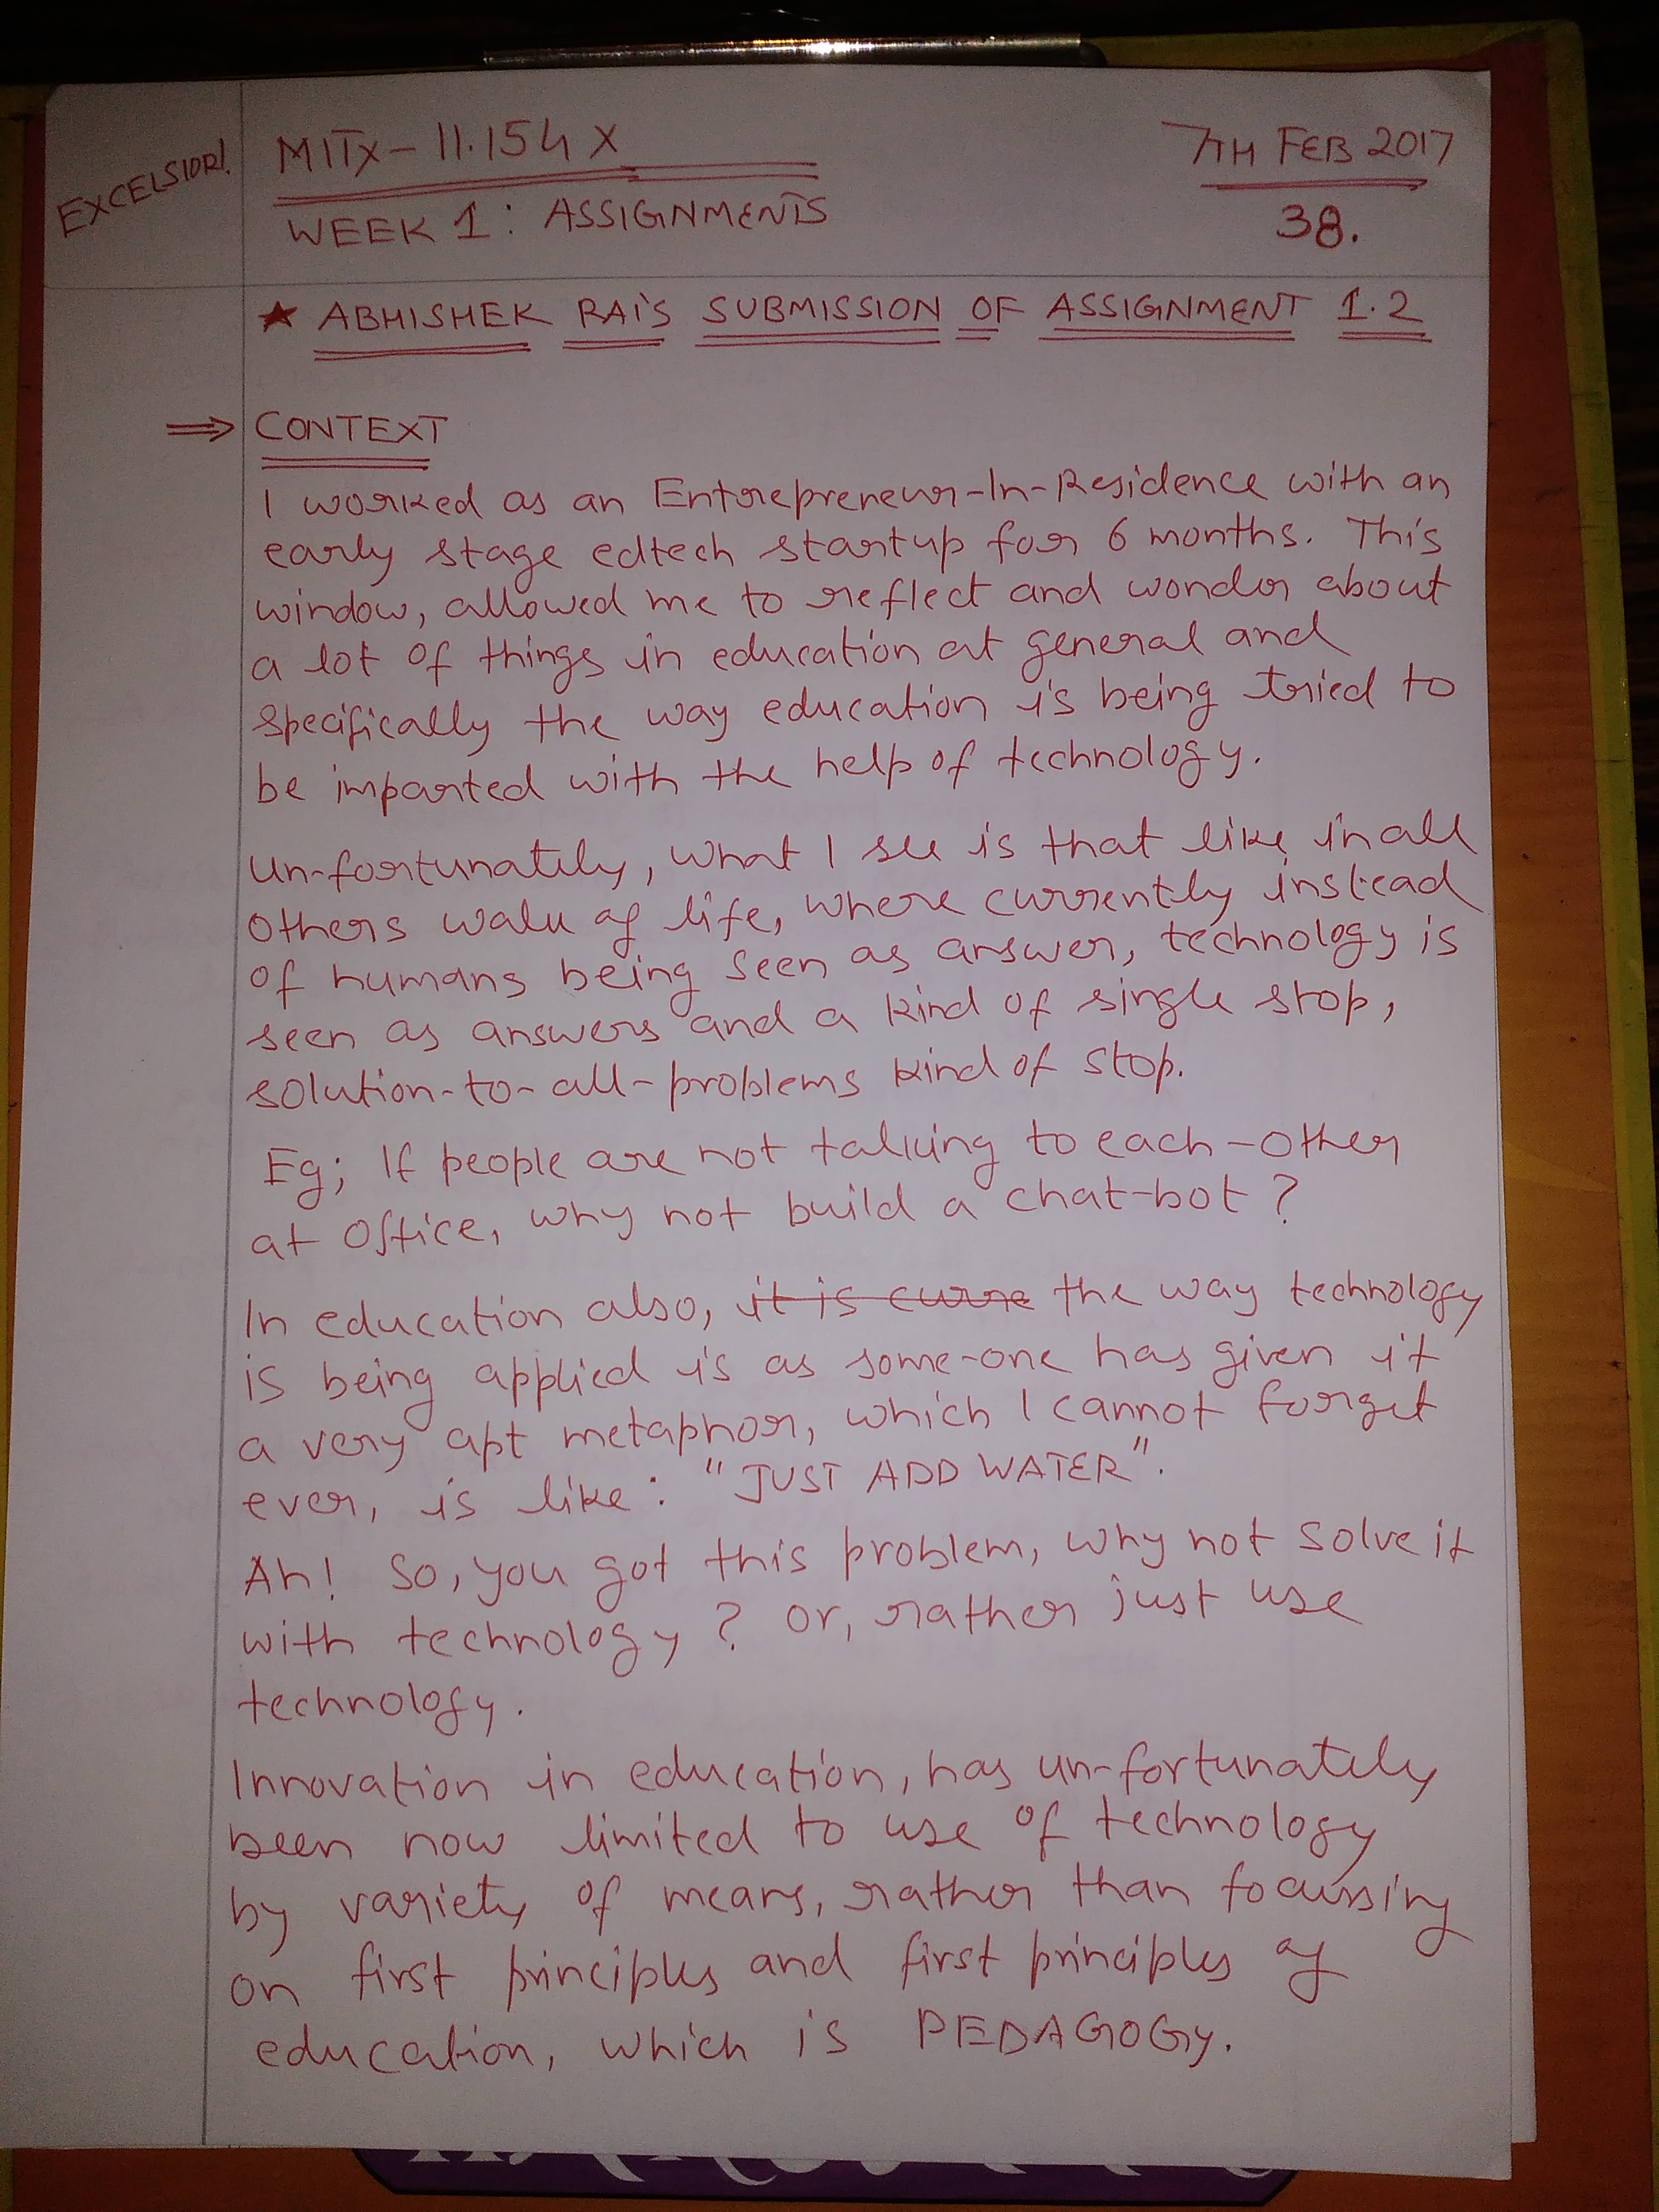 EXCELSIOR!
MITx - 11.154x
7TH FEB 2017
WEEK 1: ASSIGNMENTS
38.
★ ABHISHEK RAI'S SUBMISSION OF ASSIGNMENT 1.2
⇒ CONTEXT
I worked as an Entrepreneur-In-Residence with an
early stage edtech startup for 6 months. This
window, allowed me to reflect and wonder about
a lot of things in education at general and
specifically the way education is being tried to
be imparted with the help of technology.
Un-fortunately, what I see is that like in all
others walk of life, where currently instead
of humans being seen as answer, technology is
seen as answers and a kind of single stop,
solution-to-all-problems kind of stop.
Eg; If people are not talking to each-other
at office, why not build a chat-bot?
In education also, it is curre the way technology
is being applied is as some-one has given it
a very apt metaphor, which I cannot forget
ever, is like: "JUST ADD WATER".
Ah! So, you got this problem, why not solve it
with technology? or, rather just use
technology.
Innovation in education, has un-fortunately
been now limited to use of technology
by variety of means, rather than focussing
on first principles and first principles of
education, which is PEDAGOGY.